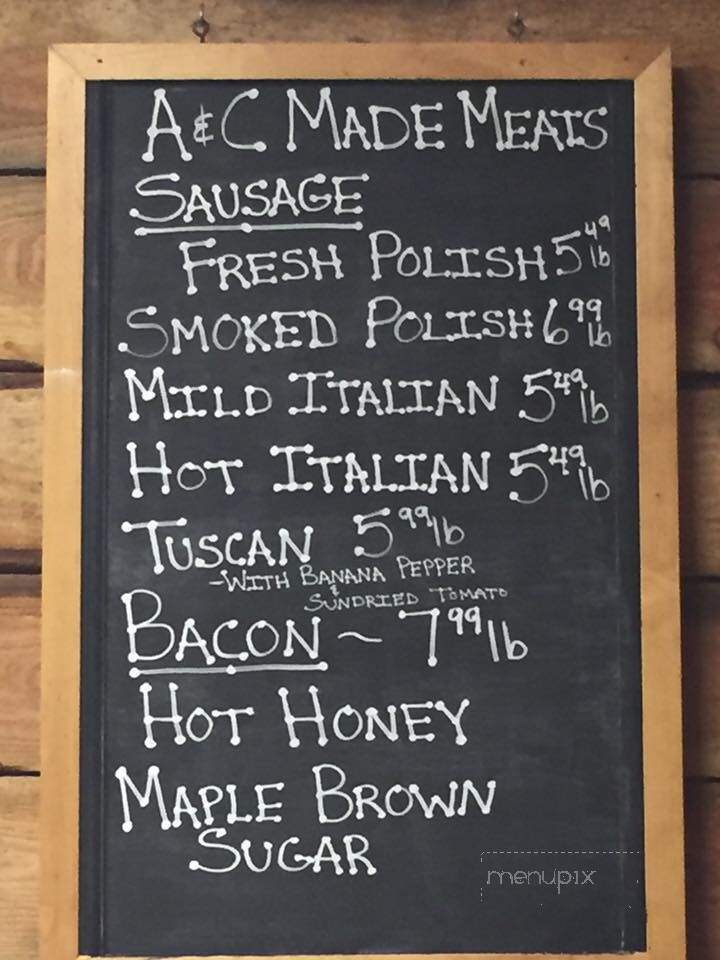 A & C MADE MEATS
SAUSAGE
FRESH POLISH 5 49 lb
SMOKED POLISH 6 99 lb
MILD ITALIAN 5 49 lb
HOT ITALIAN 5 49 lb
TUSCAN 5 99 lb
-WITH BANANA PEPPER
& SUNDRIED TOMATO
BACON ~ 7 99 lb
HOT HONEY
MAPLE BROWN
SUGAR
menupix